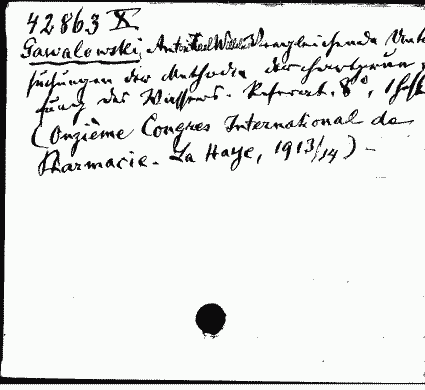 42863 X
Gawalowski, Anton Karl Wilhelm Vergleichende Unter
suchungen der Methoden der Härteprüf
fung des Wassers. Referat. 8°, 1 Heft
(Onzième Congres International de
Pharmacie. La Haye, 1913/14) -